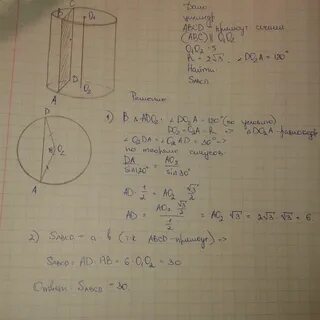 B C O₁
A D O₂
Дано:
цилиндр
ABCD - прямоуг. сечение
(ABC) || O₁O₂
O₁O₂ = 5
R = 2√3, ∠DO₂A = 120°
Найти:
SABCD
Решение
D
R O₂
A
1) В △ADO₂: ∠DO₂A = 120° (по условию)
DO₂ = O₂A = R. => △DO₂A - равнобедр
∠O₂DA = ∠O₂AD = 30° =>
по теореме синусов
DA / sin120° = AO₂ / sin30°
AD · 1/2 = AO₂ √3/2
AD = AO₂ √3/2 / 1/2 = AO₂ √3 = 2√3 · √3 = 6
2) SABCD = a · b (т.к ABCD - прямоуг) =>
SABCD = AD · AB = 6 · O₁O₂ = 30
Ответ: SABCD = 30.